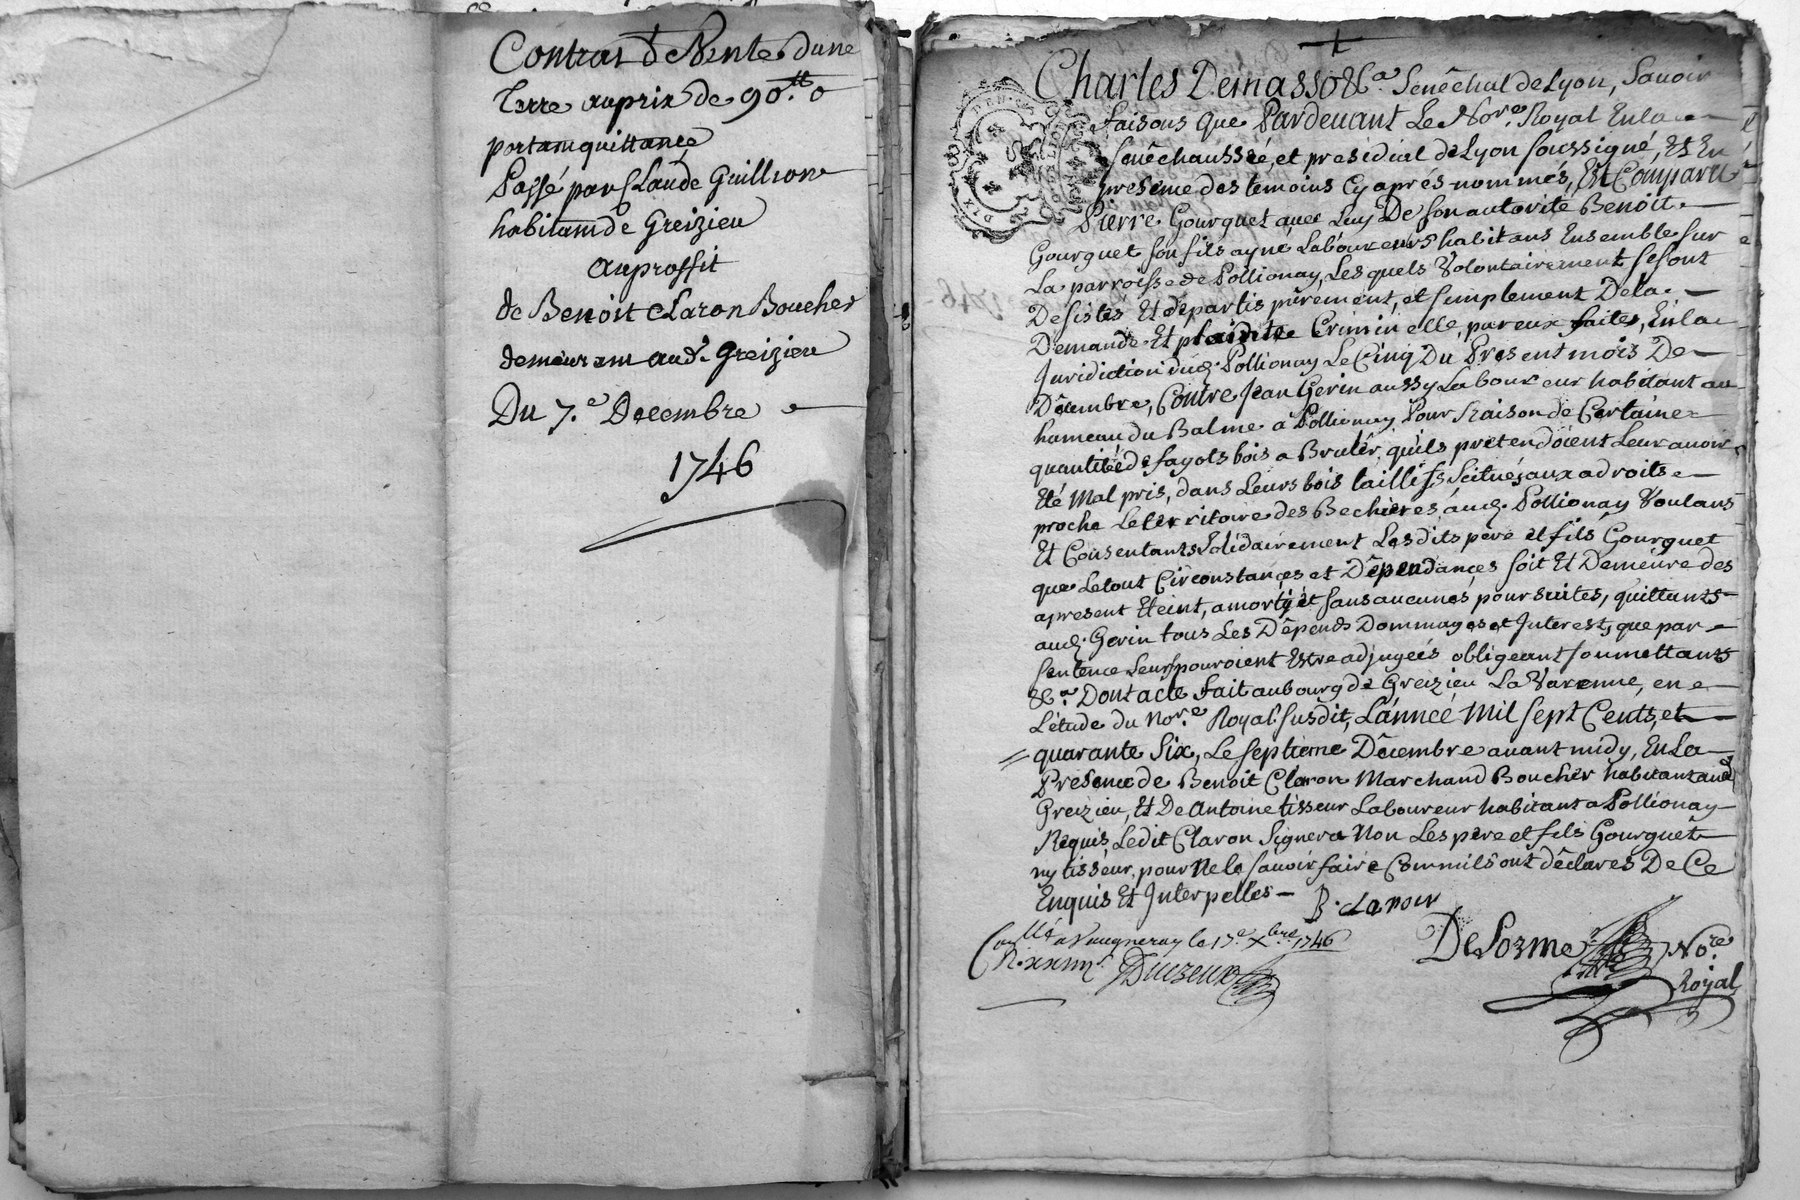 Contrat de Vente dune
Terre au prix de 90.tt o
portant quittance
Passé par Claude Guillion
habitant de Greizieu
Au proffit
de Benoit Claron Boucher
demeurant aud. Greizieu
Du 7.e Decembre
1746
Charles Demasso &c.a Senêchal de Lyon, Savoir
faisons que Pardevant Le No.re Royal En la
senêchaussée, et presidial de Lyon soussigné, Et En
presence des temoins Cy aprés nommés, Est Comparu
Pierre Gourguet avec Luy De son autorité Benoit
Gourguet son fils ayné Laboureurs habitans Ensemble sur
La parroisse de Pollionay, Les quels Volontairement se sont
Desistés Et départis purement, et simplement De la
Demande Et plaintte Criminelle, par eux faites, En la
Juridiction dud. Pollionay Le Cinq Du Present mois De
Décembre, Contre Jean Gerin aussy Laboureur habitant au
hameau du Balme à Pollionay Pour Raison de Certaine
quantité de fagots bois a Brulér, qu'ils prétendoient Leur avoir
Eté Mal pris, dans Leurs bois taillifs Scitués aux adroits
proche Le territoire des Bechieres aud. Pollionay Voulans
Et Consentants Solidairement Lesdits pere et fils Gourguet
que Le tout Circonstances et Dépendances soit Et Demeure des
apresent Eteint, amorty et sans aucunes poursuites, quittants
aud. Gerin tous Les Dépends Dommages et Interest, que par
sentence Leurs pouroient Estre adjugées obligeant soumettants
&c.a Dont acte fait au bourg de Greizieu La Varenne, en
L'étude du No.re Royal susdit, L'année Mil sept Cents, et
quarante Six, Le septieme Décembre avant midy, En La
Presence de Benoit Claron Marchand Boucher habitant aud
Greizieu, Et De Antoine tisseur Laboureur habitant a Pollionay
Requis, Ledit Claron Signera Non Les pere et fils Gourguet
ny tisseur, pour Ne le savoir faire Comm'ils ont déclarés De Ce
Enquis Et Interpelles
B. claron
Con.llé a Vaugneray le 17.e Xbre 1746
DeLorme No.re
Royal